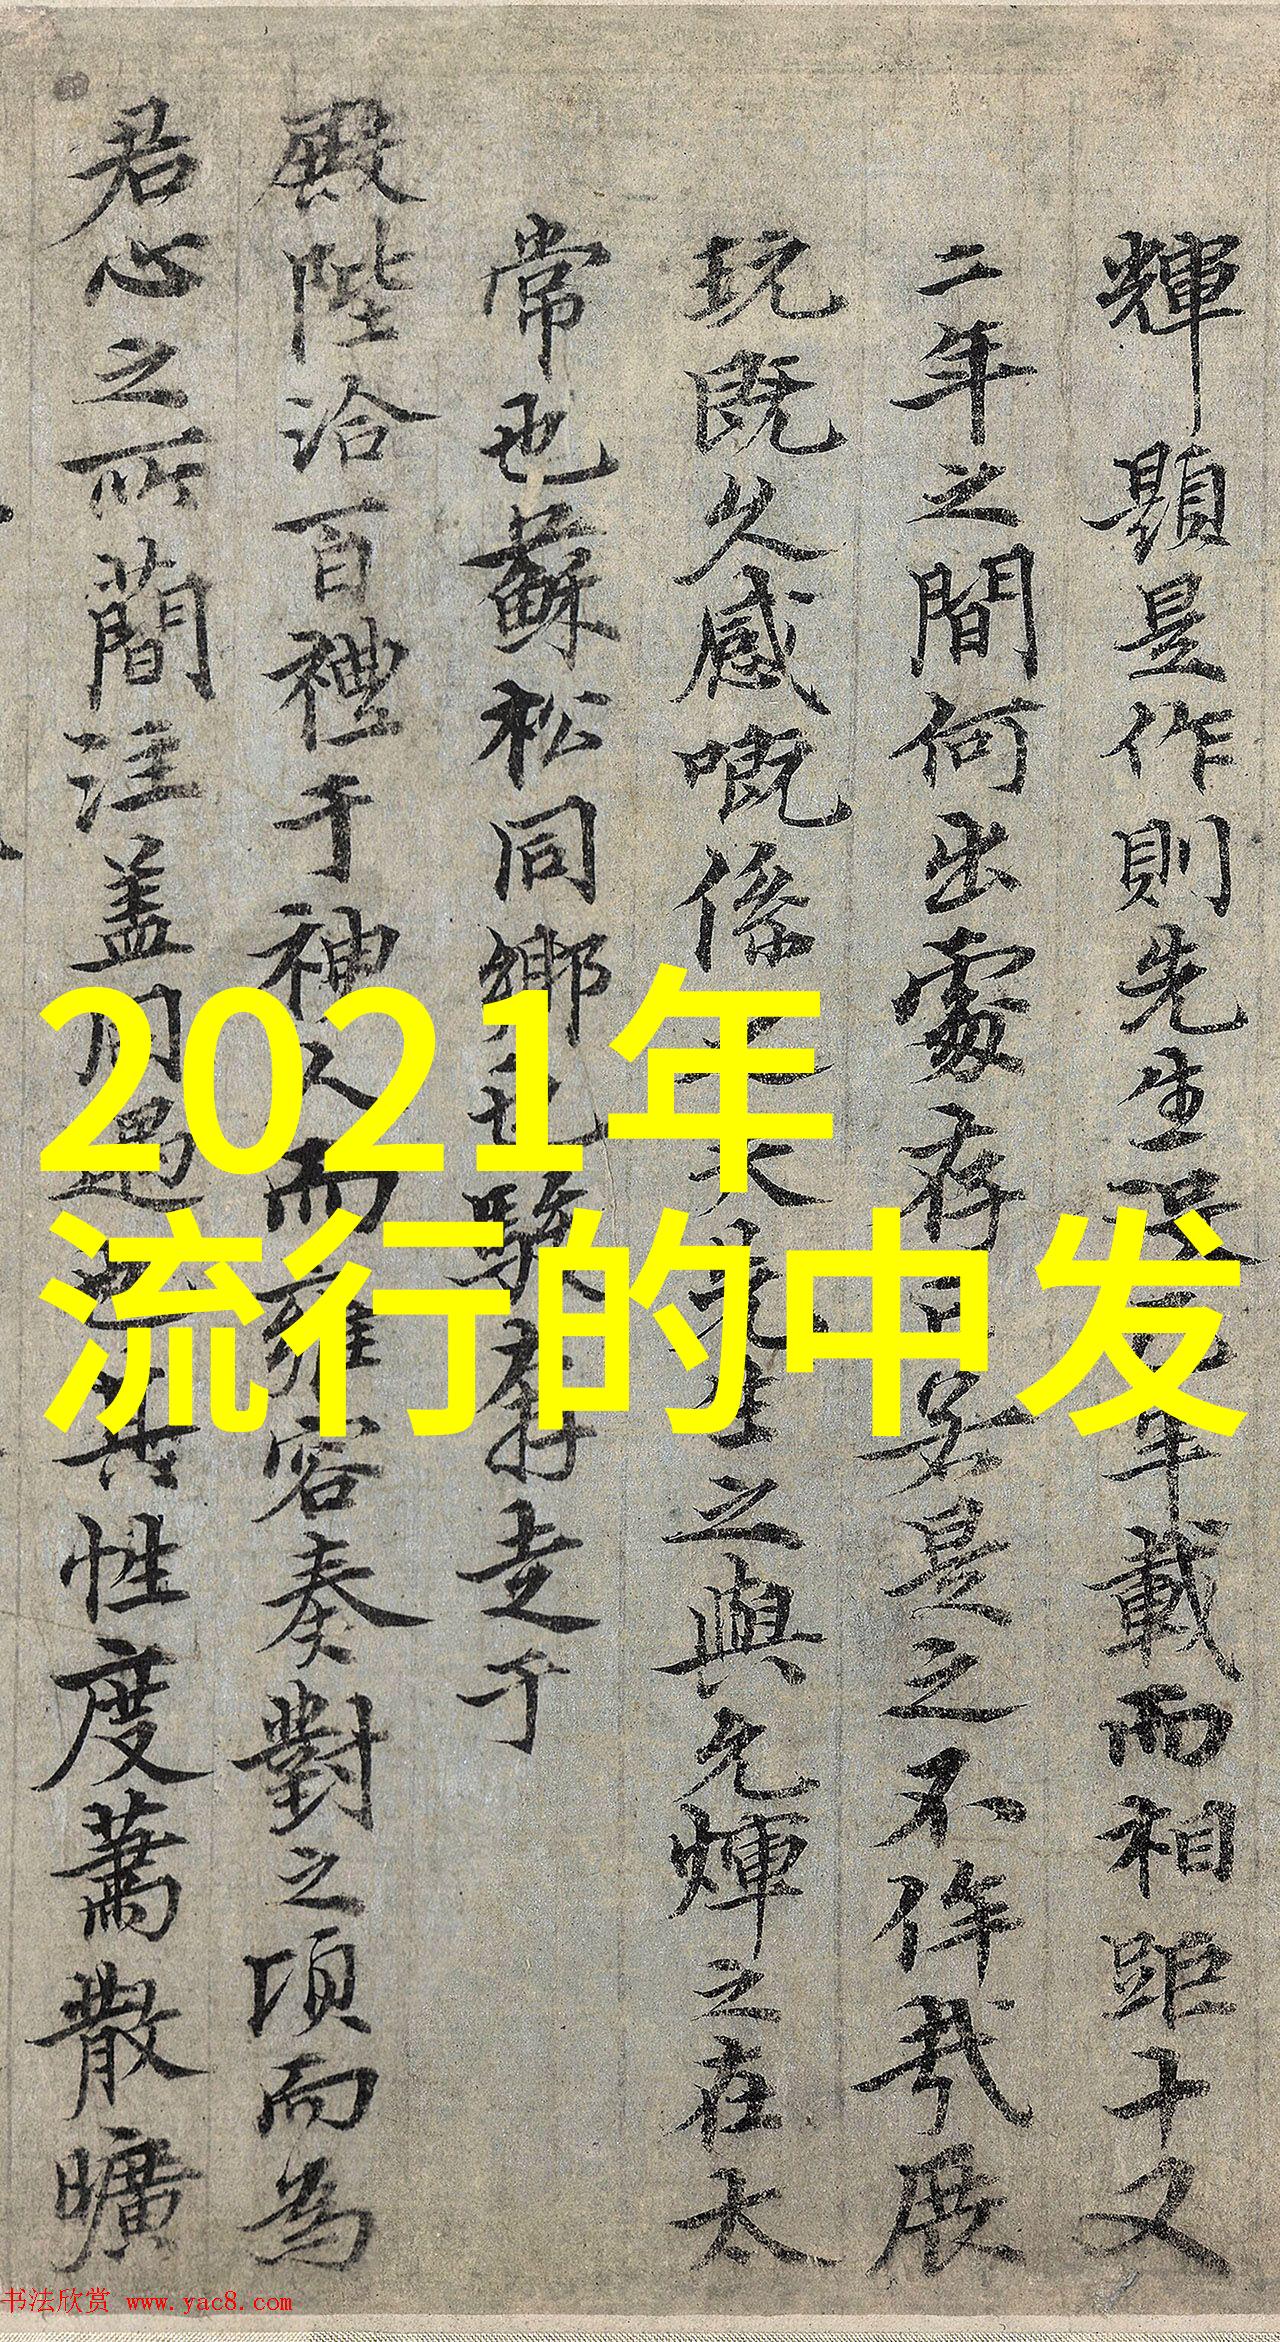 輝題是作則先生
載而相距十又
二年之間何出處存
是之不侔哉展
玩既久感嘅係
之與允煇之在太
常也蘇松同鄉也
走于
殿陛洽百禮于神人而雍容奏對之頃而為
君心之所簡注蓋
性度蕭散曠
2021年
流行的中发
书法欣赏 www.yac8.com